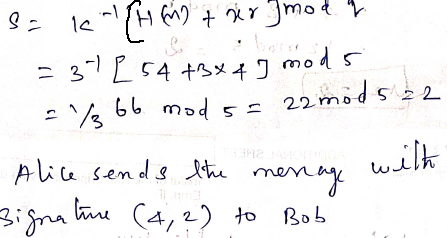 S = k⁻¹ [H(m) + xr] mod q
= 3⁻¹ [54 + 3×4] mod 5
= 1/3 66 mod 5 = 22 mod 5 = 2
Alice sends the message with
signature (4,2) to Bob